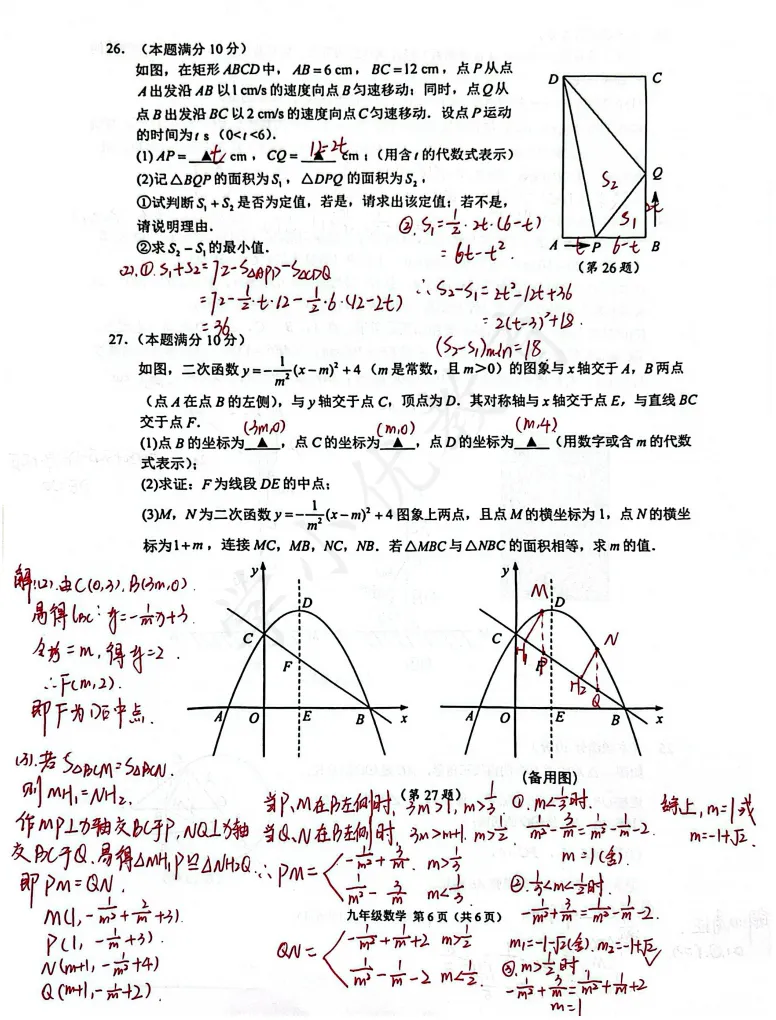 26. （本题满分10分）
如图，在矩形ABCD中，AB=6 cm，BC=12 cm，点P从点
A出发沿AB以1 cm/s的速度向点B匀速移动；同时，点Q从
点B出发沿BC以2 cm/s的速度向点C匀速移动．设点P运动
的时间为t s（0<t<6）．
(1) AP=▲ t cm，CQ=▲ 12-2t cm；（用含t的代数式表示）
(2)记△BQP的面积为S₁，△DPQ的面积为S₂，
①试判断S₁+S₂是否为定值，若是，请求出该定值；若不是，
请说明理由．
②求S₂−S₁的最小值．
D C
S₂ Q
S₁ 2t
A t P 6-t B
（第26题）
②. S₁=½·2t·(6-t)
=6t-t².
∴S₂-S₁=2t²-12t+36
=2(t-3)²+18.
(S₂-S₁)min=18
(2).①.S₁+S₂=72-S△APD-S△CDQ
=72-½·t·12-½·6·(12-2t)
=36
27.（本题满分10分）
如图，二次函数y=-1/m²(x-m)²+4（m是常数，且m>0）的图象与x轴交于A，B两点
（点A在点B的左侧），与y轴交于点C，顶点为D．其对称轴与x轴交于点E，与直线BC
交于点F．
(3m,0) (m,0) (m,4)
(1)点B的坐标为▲，点C的坐标为▲，点D的坐标为▲（用数字或含m的代数
式表示）；
(2)求证：F为线段DE的中点；
(3)M，N为二次函数y=-1/m²(x-m)²+4图象上两点，且点M的横坐标为1，点N的横坐
标为1+m，连接MC，MB，NC，NB．若△MBC与△NBC的面积相等，求m的值．
解:(2).由C(0,3),B(3m,0).
易得lBC:y=-1/m x+3
令x=m,得y=2
∴F(m,2).
即F为DE中点.
y D C F A O E B x
（第27题）
y M D C N H₁ P H₂ Q A O E B x
（备用图）
(3).若S△BCM=S△BCN.
则MH₁=NH₂,
作MP⊥x轴交BC于P,NQ⊥x轴
交BC于Q.易得△MH₁P≌△NH₂Q
即PM=QN.
M(1,-1/m²+2/m+3)
P(1,-1/m+3).
N(m+1,-1/m²+4)
Q(m+1,-1/m+2).
当P、M在B左侧时,3m>1,m>1/3
当Q、N在B左侧时,3m>m+1,m>1/2
∴PM={-1/m²+3/m. m>1/3
1/m²-3/m m<1/3
QN={-1/m²+1/m+2 m>1/2
1/m²-1/m-2 m<1/2.
①.m<1/3时.
1/m²-3/m=1/m²-1/m-2.
m=1(舍).
②.1/3<m<1/2时.
-1/m²+3/m=1/m²-1/m-2.
m₁=-1-√2(舍).m₂=-1+√2
③.m>1/2时.
-1/m²+3/m=-1/m²+1/m+2
m=1
综上,m=1或
m=-1+√2.
九年级数学 第6页（共6页）